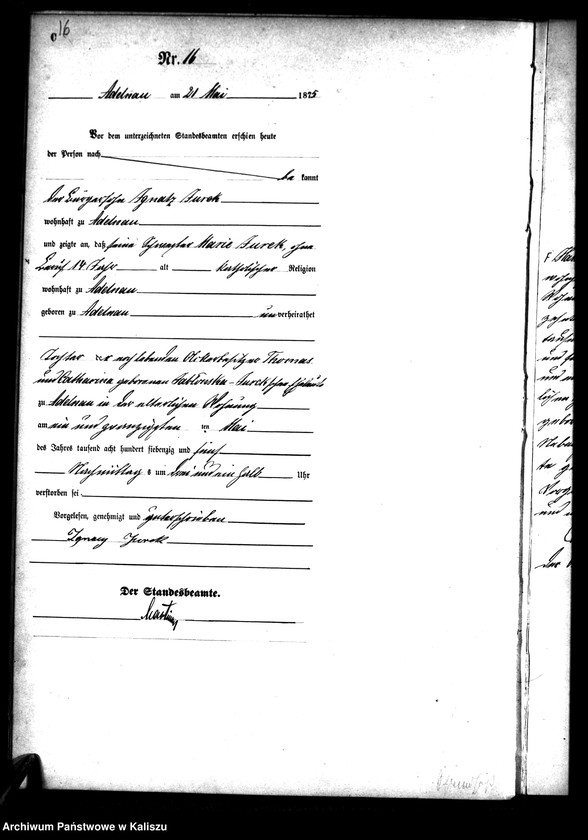 16
C
Nr. 16
Adelnau am 21 Mai 1875
Vor dem unterzeichneten Standesbeamten erschien heute
der Person nach
be kannt
der Bürgersohn Ignatz Jurek
wohnhaft zu Adelnau
und zeigte an, daß seine Schwester Marie Jurek, ohne
Beruf 14 Jahr alt katholischer Religion
wohnhaft zu Adelnau
geboren zu Adelnau unverheirathet
Tochter der noch lebenden Ackerbesitzer Thomas
und Catharina geborenen Jurekschen Eheleute
zu Adelnau in der elterlichen Wohnung
am ein und zwanzigsten ten Mai
des Jahres tausend acht hundert siebenzig und fünf
Nachmittag s um drei und ein halb Uhr
verstorben sei
Vorgelesen, genehmigt und unterschrieben
Ignacy Jurek
Der Standesbeamte.
Archiwum Państwowe w Kaliszu